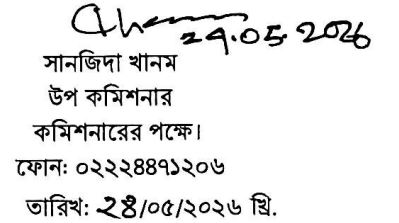 24.05.2026
সানজিদা খানম
উপ কমিশনার
কমিশনারের পক্ষে।
ফোন: ০২২২৪৪৭১২০৬
তারিখ: ২৪/০৫/২০২৬ খ্রি.